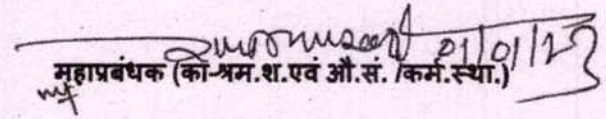 01/01/23
महाप्रबंधक (का-श्रम.श.एवं औ.सं. /कर्म.स्था.)